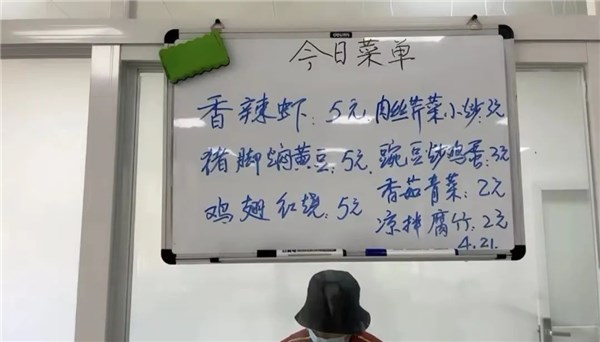 今日菜单
香辣虾：5元
猪脚焖黄豆：5元
鸡翅红烧：5元
肉丝芹菜小炒：3元
豌豆炒鸡蛋：3元
香菇青菜：2元
凉拌腐竹：2元
4.21.